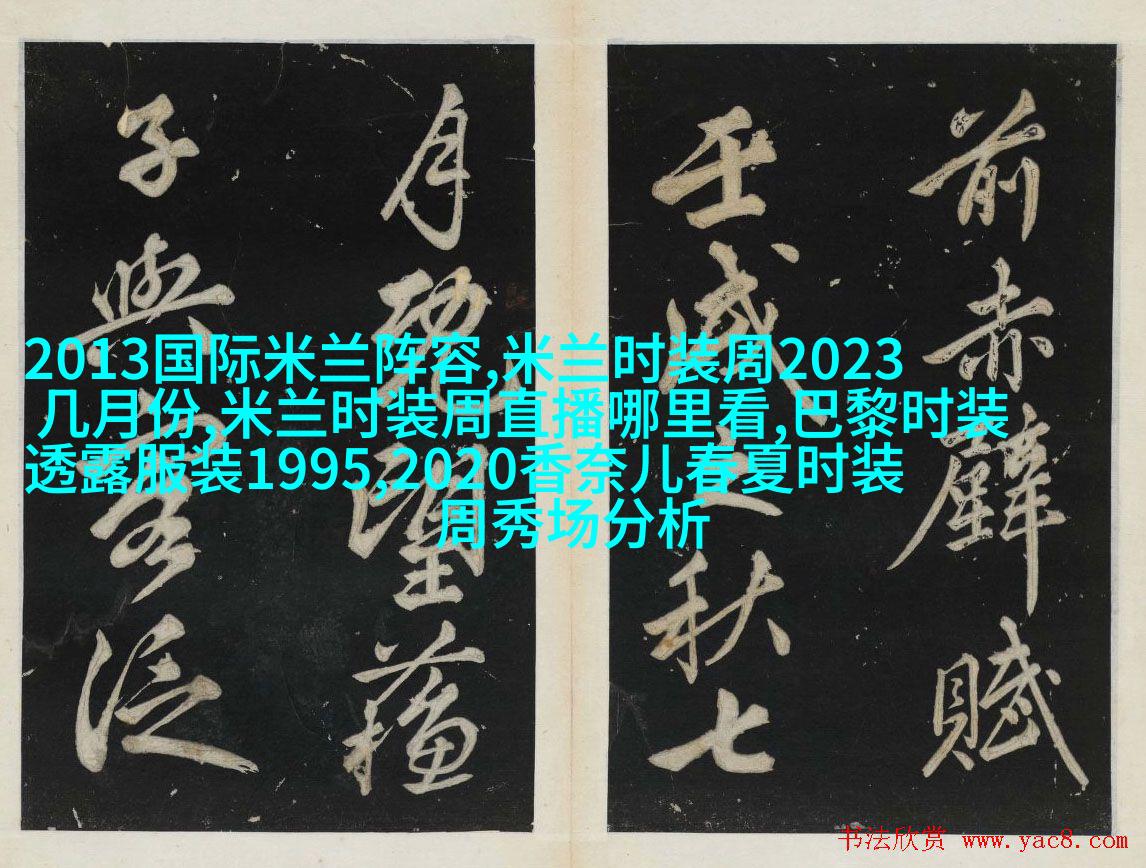 前赤壁賦
壬戌之秋七
月既望蘇
子與客泛
2013国际米兰阵容,米兰时装周2023
几月份,米兰时装周直播哪里看,巴黎时装
透露服装1995,2020香奈儿春夏时装
周秀场分析
书法欣赏 www.yac8.com